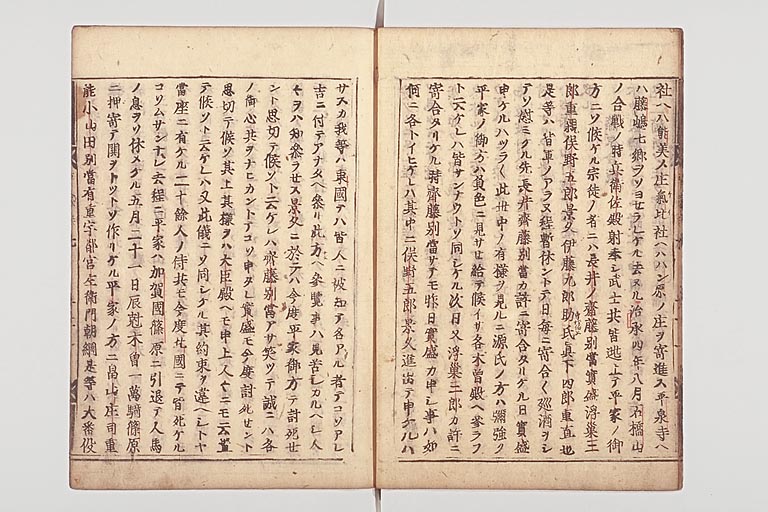 社ヘハ能美ノ庄氣比社ヘハハン原ノ庄ヲ寄進ス平泉寺ヘ
ハ藤嶋七郷ヲソヨセラレケル去ヌル治承四年八月石橋山
ノ合戰ノ時兵衛佐殿射奉シ武士共皆逃上テ平家ノ御
方ニソ候ケル宗徒ノ者ニハ長井ノ齋藤別當實盛浮巣三
郎重親俣野五郎景久伊藤九郎助氏真下四郎重直也
是等ハ皆軍ノアラン程暫休ントテ日毎ニ寄合ク巡酒ヲシ
テソ慰ミケル先長井齋藤別當カ許ニ寄合タリケル日實盛
申ケルハツラク此世中ノ有様ヲ見ルニ源氏ノ方ハ彌強ク
平家ノ御方ハ負色ニ見サセ給テ候イサ各木曽殿ヘ參ラフ
ト云ケレハ皆サンナウトソ同シケル次日又浮巣三郎カ許ニ
寄合タリケル時齋藤別當サテモ昨日實盛カ申シ事ハ如
何ニ各トイヒケレハ其中ニ俣野五郎景久進出テ申ケルハ
サスカ我等ハ東國テハ皆人ニ被知テ各アル者テコソアレ
吉ニ付テアナタヘ參リ此方ヘ參覧事ハ見苦シカルヘシ人
ヲハ知參ラセス景久ニ於テハ今度平家御方テ討死セ
ント思切テ候ソト云ケレハ齋藤別當アサ笑ツテ誠ニハ各
ノ御心共ヲナヒカントテコソ申タレ實盛モ今度討死セント
思切テ候ソ其上其様ヲハ大臣殿ヘモ申上人々ニモ云置
テ候ソト云ケレハ又此儀ニソ同シケル其約束ヲ違ヘシトヤ
當座ニ有ケル二十餘人ノ侍共モ今度北國ニテ皆死ケル
コソムサンナレ去程ニ平家ハ加賀國篠原ニ引退テ人馬
ノ息ヲソ休メケル五月二十一日辰尅木曽一萬騎篠原
ニ押寄テ鬨ヲトツトソ作リケル平家ノ方ニ畠山庄司重
能小山田別當有重宇都宮左衛門朝綱是等ハ大番役